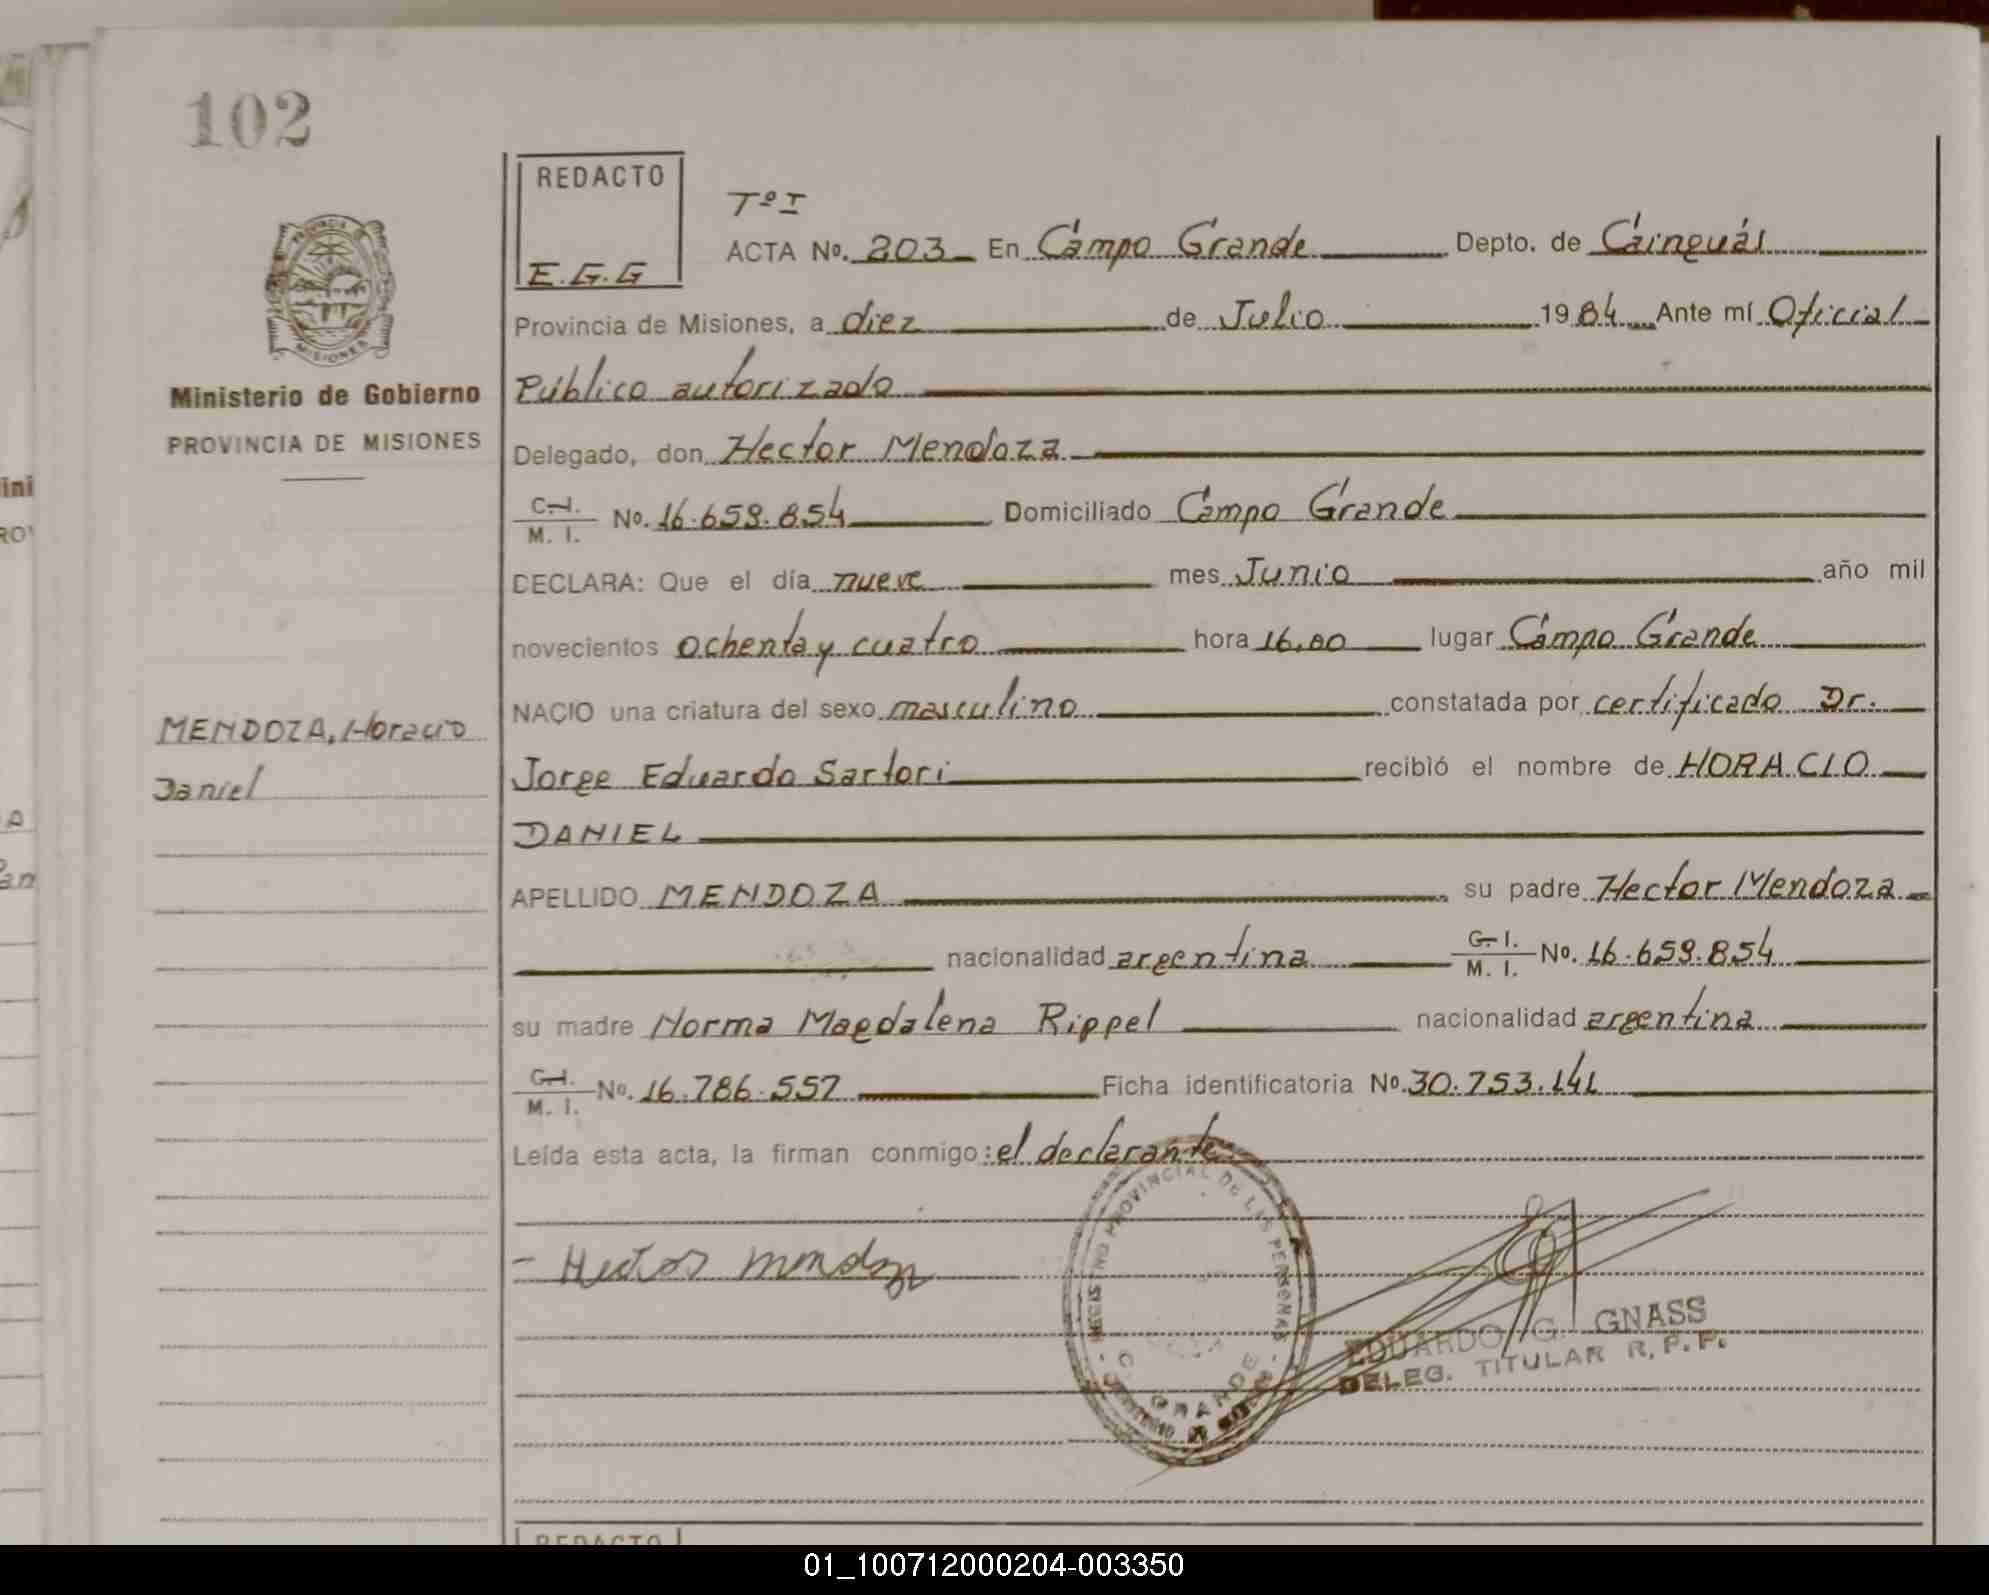 102
REDACTO
E.G.G
Tº I
ACTA Nº. 203 En Campo Grande Depto. de Cainguás
Provincia de Misiones, a diez de Julio 1984 Ante mí Oficial
Público autorizado
PROVINCIA DE
MISIONES
Ministerio de Gobierno
PROVINCIA DE MISIONES
Delegado, don Hector Mendoza
C.I. M. I. Nº. 16.659.854 Domiciliado Campo Grande
DECLARA: Que el día nueve mes Junio año mil
novecientos ochenta y cuatro hora 16,00 lugar Campo Grande
NACIO una criatura del sexo masculino constatada por certificado Dr.
MENDOZA, Horacio
Daniel
Jorge Eduardo Sartori recibió el nombre de HORACIO
DANIEL
APELLIDO MENDOZA su padre Hector Mendoza
nacionalidad argentina C.I. M. I. Nº. 16.659.854
su madre Norma Magdalena Rippel nacionalidad argentina
C.I. M. I. Nº. 16.786.557 Ficha identificatoria Nº. 30.753.141
Leída esta acta, la firman conmigo: el declarante.
- Hector Mendoza
REGISTRO PROVINCIAL DE LAS PERSONAS
C. GRANDE
EDUARDO G. GNASS
DELEG. TITULAR R. P. P.
REDACTO
01_100712000204-003350